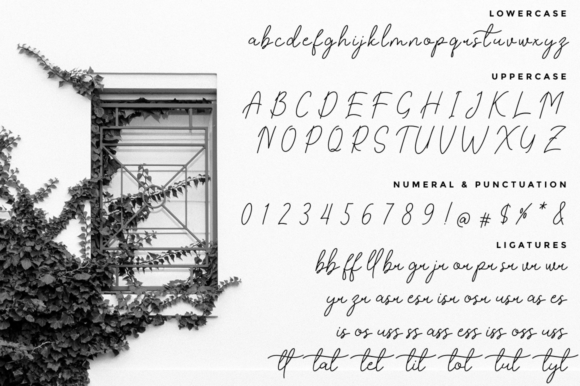 LOWERCASE
abcdefghijklmnopqrstuvwxyz
UPPERCASE
ABCDEFGHIJKLM
NOPQRSTUVWXYZ
NUMERAL & PUNCTUATION
0123456789!@#$%*&
LIGATURES
bb ff ll br gr jr or pr sr vr wr
yr zr asn esn isn osn usn as es
is os uss ss ass ess iss oss uss
tl tat tet tit tot tut tyt